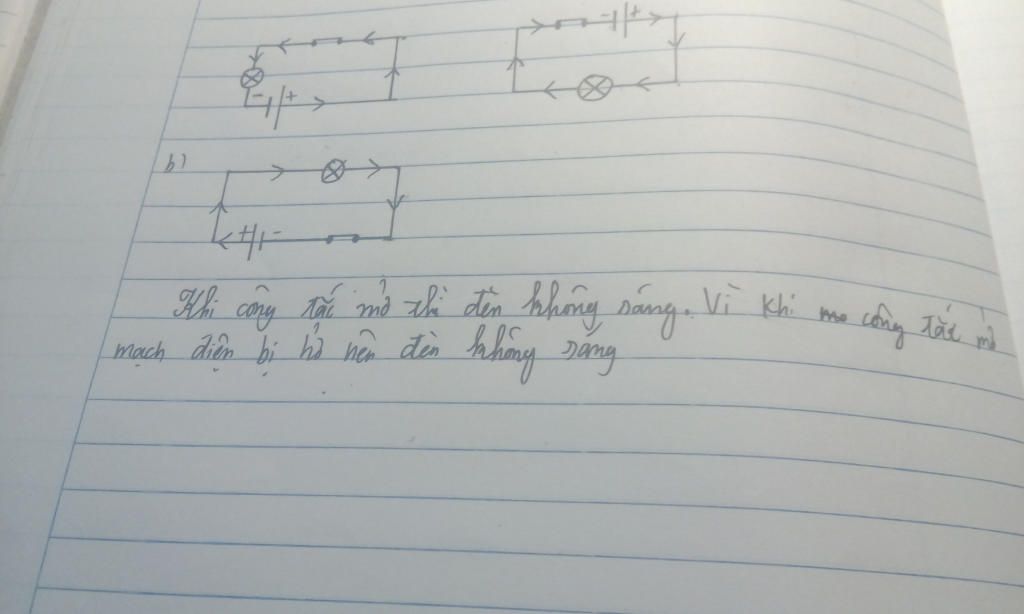 - +
- +
b)
+ -
Khi công tắc mở thì đèn không sáng. Vì khi công tắc mở
mạch điện bị hở nên đèn không sáng